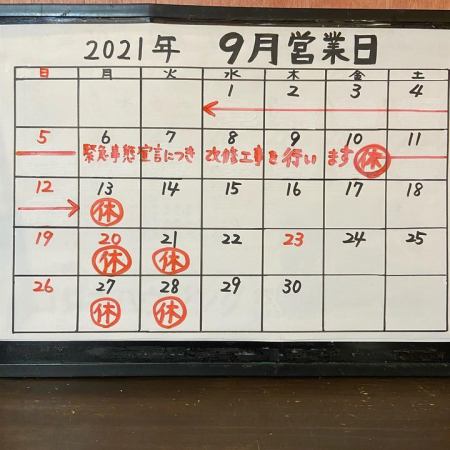 2021年 9月営業日
日 月 火 水 木 金 土
1 2 3 4
5 6 7 8 9 10 11
緊急事態宣言につき 改修工事を行います 休
12 13 14 15 16 17 18
休
19 20 21 22 23 24 25
休 休
26 27 28 29 30
休 休